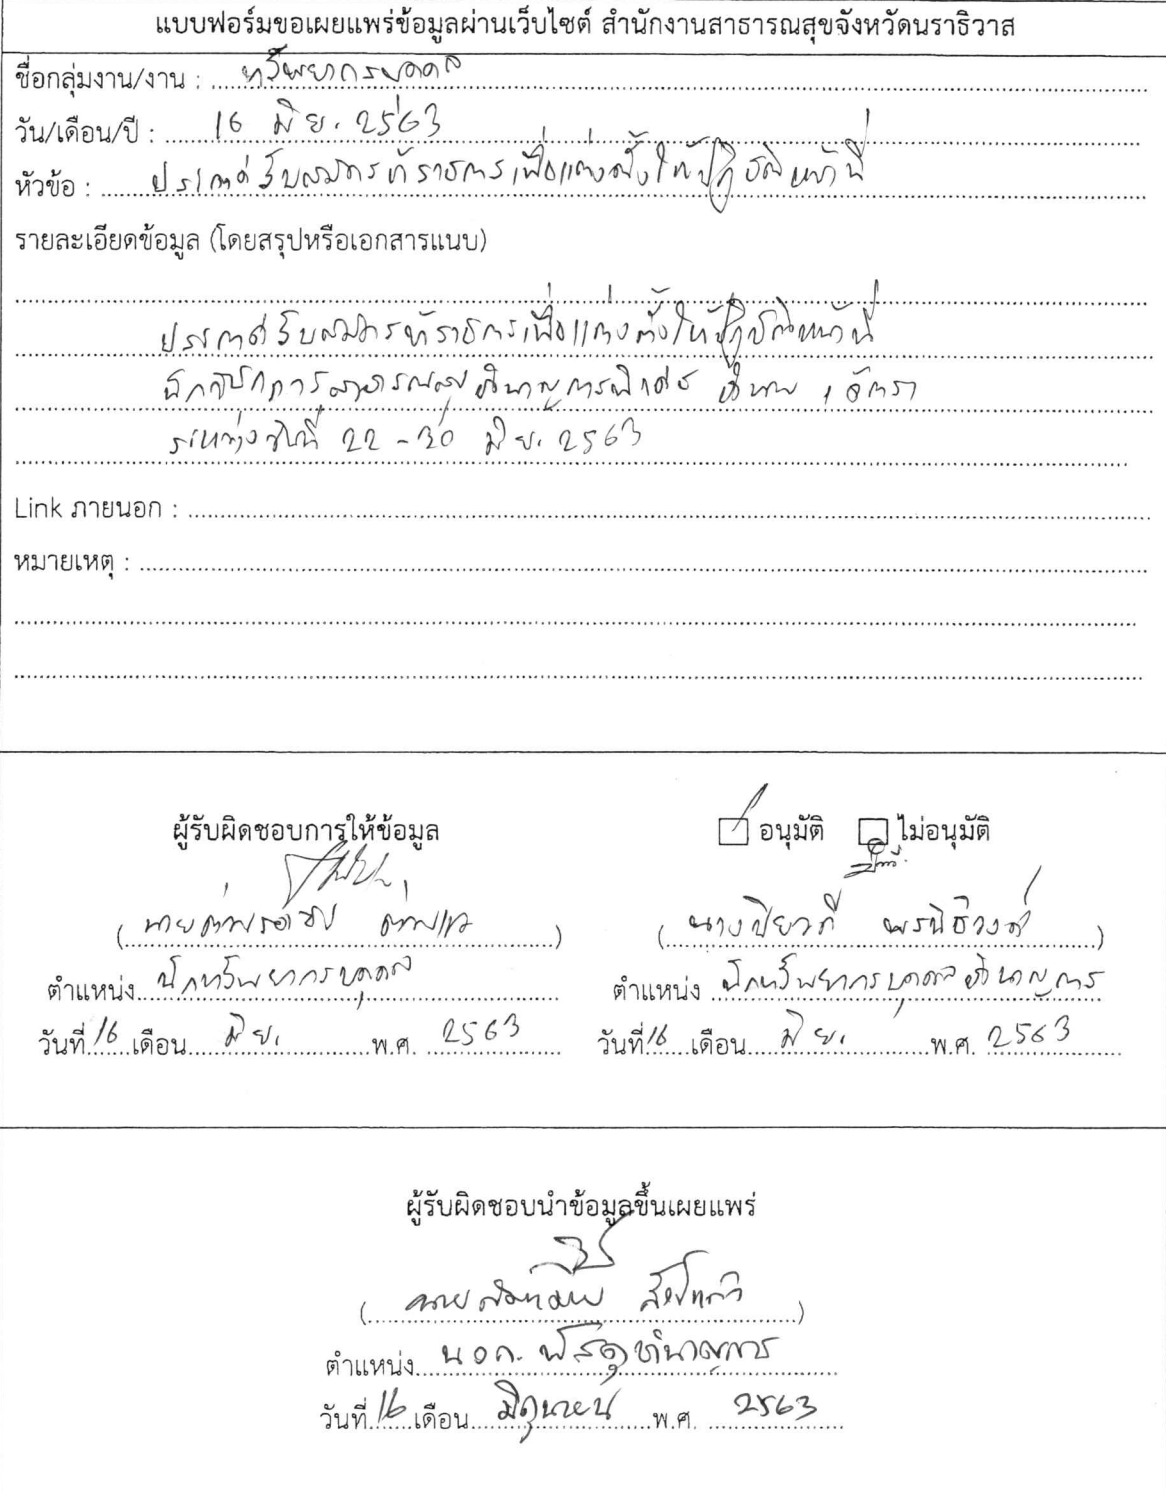 แบบฟอร์มขอเผยแพร่ข้อมูลผ่านเว็บไซต์ สำนักงานสาธารณสุขจังหวัดนราธิวาส
ชื่อกลุ่มงาน/งาน : ทรัพยากรบุคคล
วัน/เดือน/ปี : 16 มิ.ย. 2563
หัวข้อ : ประกาศรับสมัครข้าราชการเพื่อแต่งตั้งให้ปฏิบัติหน้าที่
รายละเอียดข้อมูล (โดยสรุปหรือเอกสารแนบ)
ประกาศรับสมัครข้าราชการเพื่อแต่งตั้งให้ปฏิบัติหน้าที่
นักวิชาการสาธารณสุขชำนาญการพิเศษ จำนวน 1 อัตรา
ระหว่างวันที่ 22 - 30 มิ.ย. 2563
Link ภายนอก :
หมายเหตุ :
ผู้รับผิดชอบการให้ข้อมูล
( นาย )
ตำแหน่ง นักทรัพยากรบุคคล
วันที่ 16 เดือน มิ.ย. พ.ศ. 2563
อนุมัติ ไม่อนุมัติ
( นางปิยวดี พรนิธิวงศ์ )
ตำแหน่ง นักทรัพยากรบุคคลชำนาญการ
วันที่ 16 เดือน มิ.ย. พ.ศ. 2563
ผู้รับผิดชอบนำข้อมูลขึ้นเผยแพร่
( นาย )
ตำแหน่ง ชำนาญการ
วันที่ 16 เดือน มิถุนายน พ.ศ. 2563